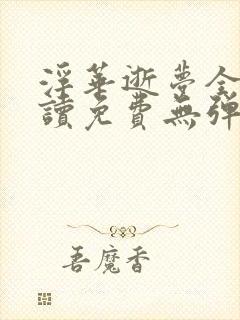 淫華逝夢全
讀免費無彈
吾魔香